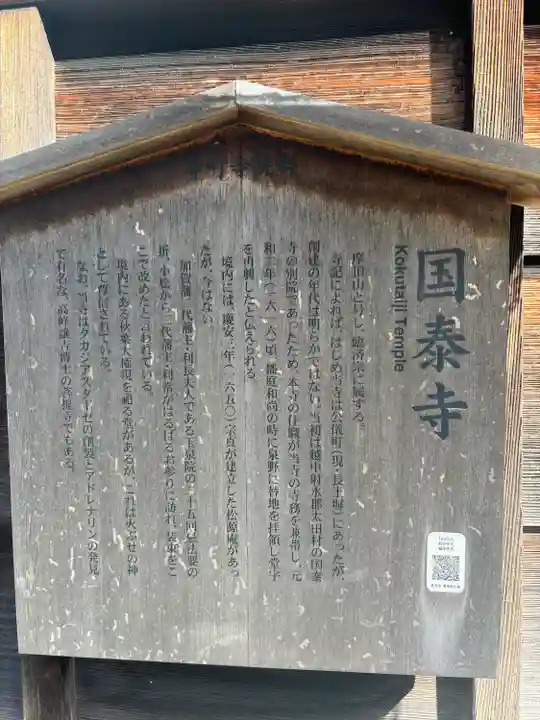 国泰寺
Kokutaiji Temple
摩頂山と号し、臨済宗に属する。
寺記によれば、はじめ当寺は公儀町(現・長土塀)にあったが、
創建の年代は明らかではない。当初は越中射水郡太田村の国泰
寺の別院であったため、本寺の住職が当寺の寺務を兼帯し、元
和二年(一六一六)頃、徹庭和尚の時に泉野に替地を拝領し堂宇
を再興したと伝えられる。
境内には、慶安三年(一六五〇)宗貞が建立した松源庵があっ
たが、今はない。
加賀藩二代藩主・利長夫人である玉泉院の二十五回忌法要の
折、小松から三代藩主・利常がはるばるお参りに訪れ、装束をこ
こで改めたと言われている。
境内にある秋葉大権現を祀る堂があるが、これは火ぶせの神
として尊信されている。
なお、当寺はタカジアスターゼの創製とアドレナリンの発見
で有名な、高峰譲吉博士の菩提寺でもある。